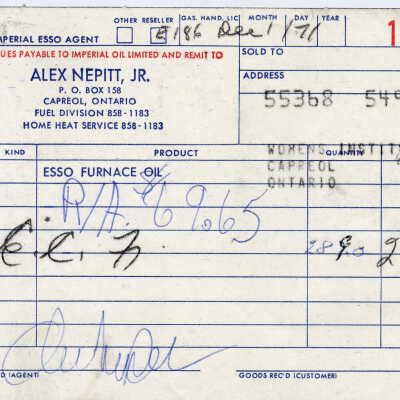 IMPERIAL ESSO AGENT OTHER RESELLER GAS. HAND, LIC MONTH DAY YEAR
E186 Dec 1/71 1
UES PAYABLE TO IMPERIAL OIL LIMITED AND REMIT TO
SOLD TO
ALEX NEPITT, JR.
P. O. BOX 158
CAPREOL, ONTARIO
FUEL DIVISION 858-1183
HOME HEAT SERVICE 858-1183
ADDRESS
55368 549
WOMENS INSTIT
CAPREOL
ONTARIO
KIND PRODUCT QUANTITY
ESSO FURNACE OIL
R/A. $69.65
D (AGENT) GOODS REC'D (CUSTOMER)